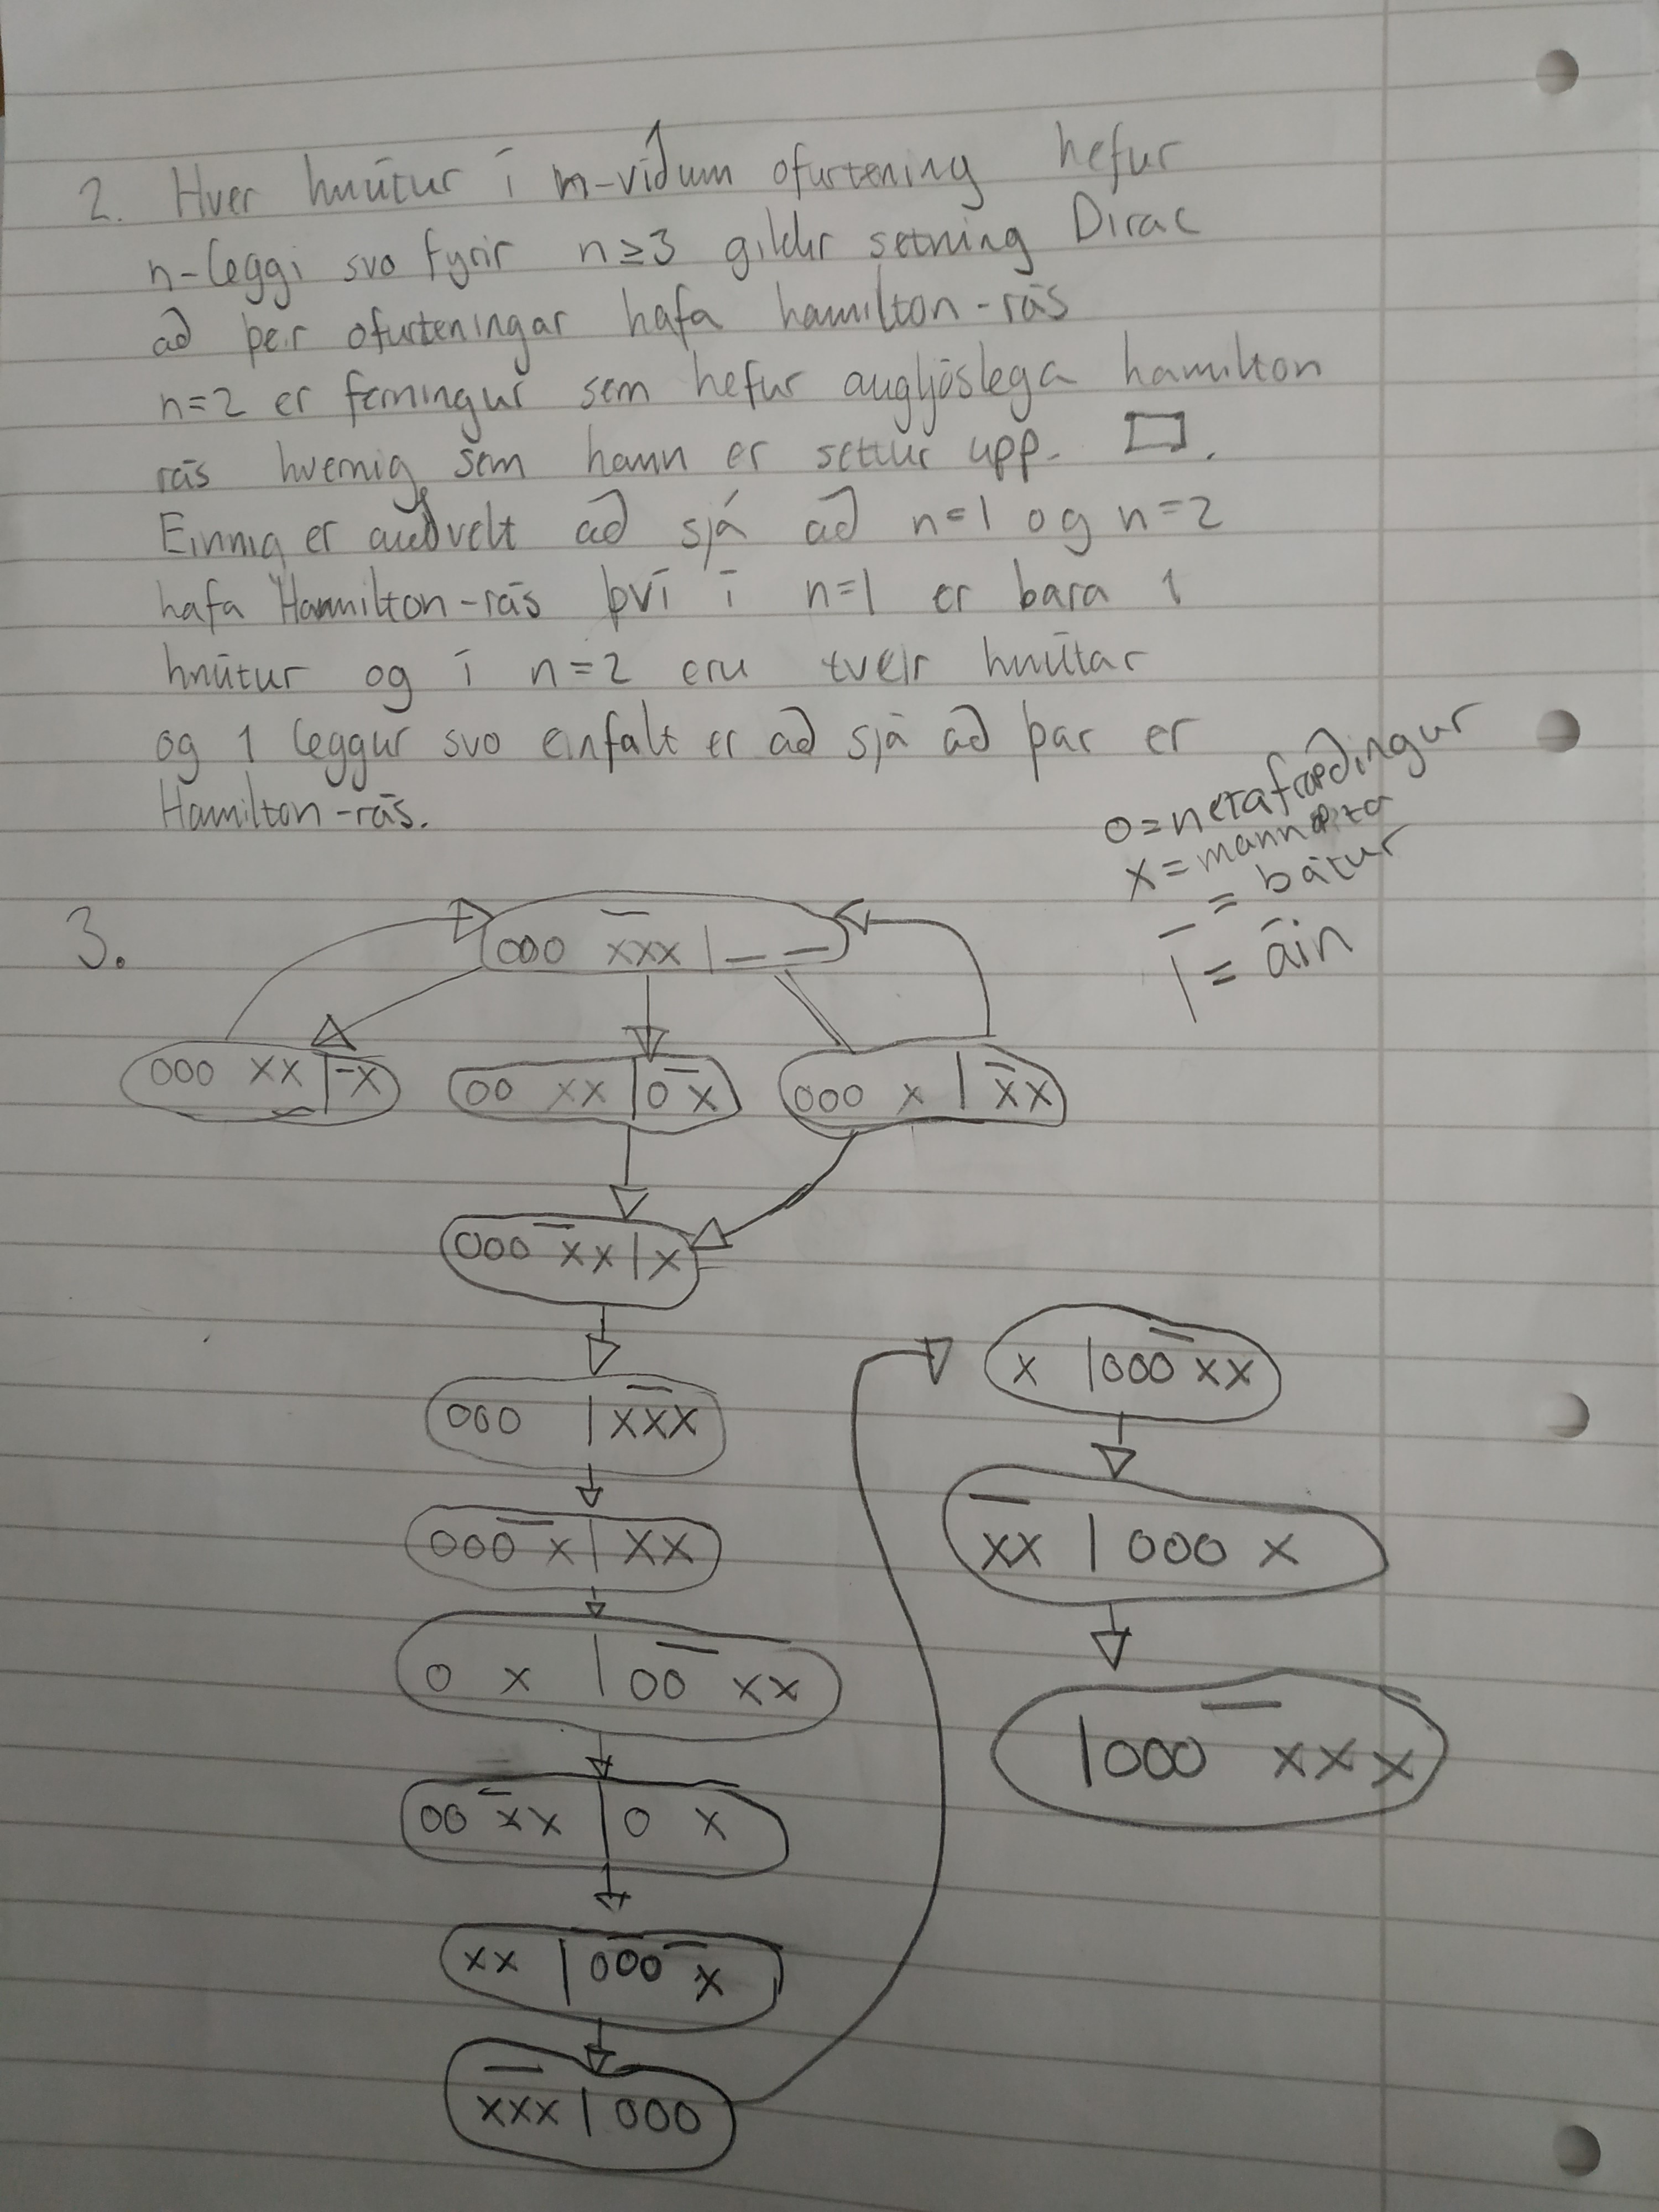 2. Hver hnútur í n-víðum ofurtening hefur
n-leggi svo fyrir n≥3 gildir setning Dirac
að þeir ofurteningar hafa hamilton-rás
n=2 er ferningur sem hefur augljóslega hamilton
rás hvernig sem hann er settur upp. □.
Einnig er auðvelt að sjá að n=1 og n=2
hafa Hammilton-rás því í n=1 er bara 1
hnútur og í n=2 eru tveir hnútar
og 1 leggur svo einfalt er að sjá að þar er
Hamilton-rás.
o=netafræðingur
x=mannæta
‾ = bátur
| = áin
3.
000 xxx | _ _
000 xx | x
00 xx | 0 x
000 x | xx
000 xx | x
000 | xxx
000 x | xx
0 x | 00 xx
00 xx | 0 x
xx | 000 x
xxx | 000
x | 000 xx
xx | 000 x
| 000 xxx